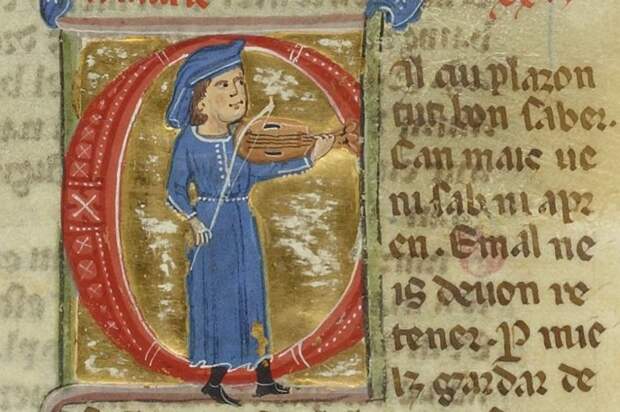 CIl cui plazon
tut bon saber.
Can maic ue
ni sab ni apr
en. E mal ne
is deuon re
tener. P mie
lz gardar de